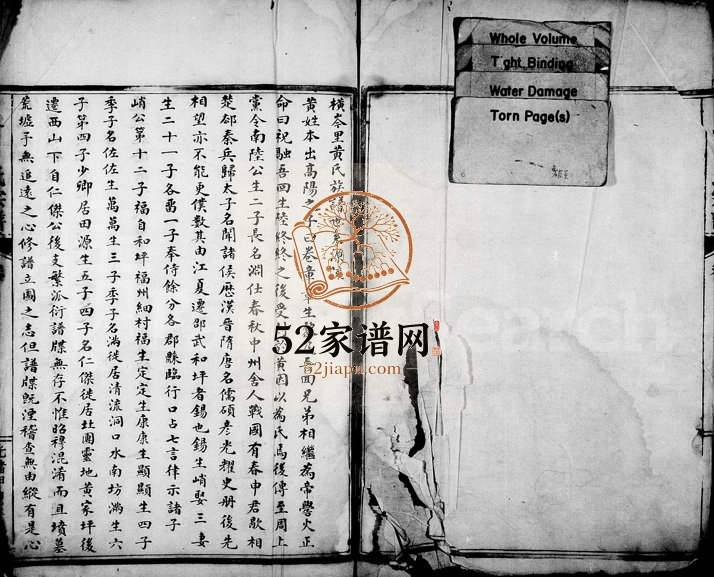 Whole Volume
Tight Binding
Water Damage
Torn Page(s)
橫岺里黄氏族譜世系源
黄姓本出高陽之子曰卷章章生 回兄弟相繼為帝嚳火正
命曰祝融吾回生陸終終之後受 黄因以為氏焉後傳至周上
黨令南陸公生二子長名淵仕春秋中州舍人戰國有春申君歇相
楚郤秦兵歸太子名聞諸侯歷漢晉隋唐名儒碩彦光耀史册後先
相望亦不能更僕數其由江夏遷邵武和坪者錫也錫生峭娶三妻
生二十一子各畱一子奉侍餘分各郡縣臨行口占七言律示諸子
峭公第十二子福自和坪福州細村福生定定生康康生顯顯生四子
季子名佐佐生萬萬生三子季子名滿徙居清流洞口水南坊滿生六
子第四子少卿居田源生五子四子名仁傑徙居社團靈地黄家坪後
遷西山下自仁傑公後支繁派衍譜牒無存不惟昭穆混淆而且墳墓
荒墟予無追遠之心修譜立圖之志但譜牒旣湮稽查無由縱有是心
52家谱网
52jiapu.com